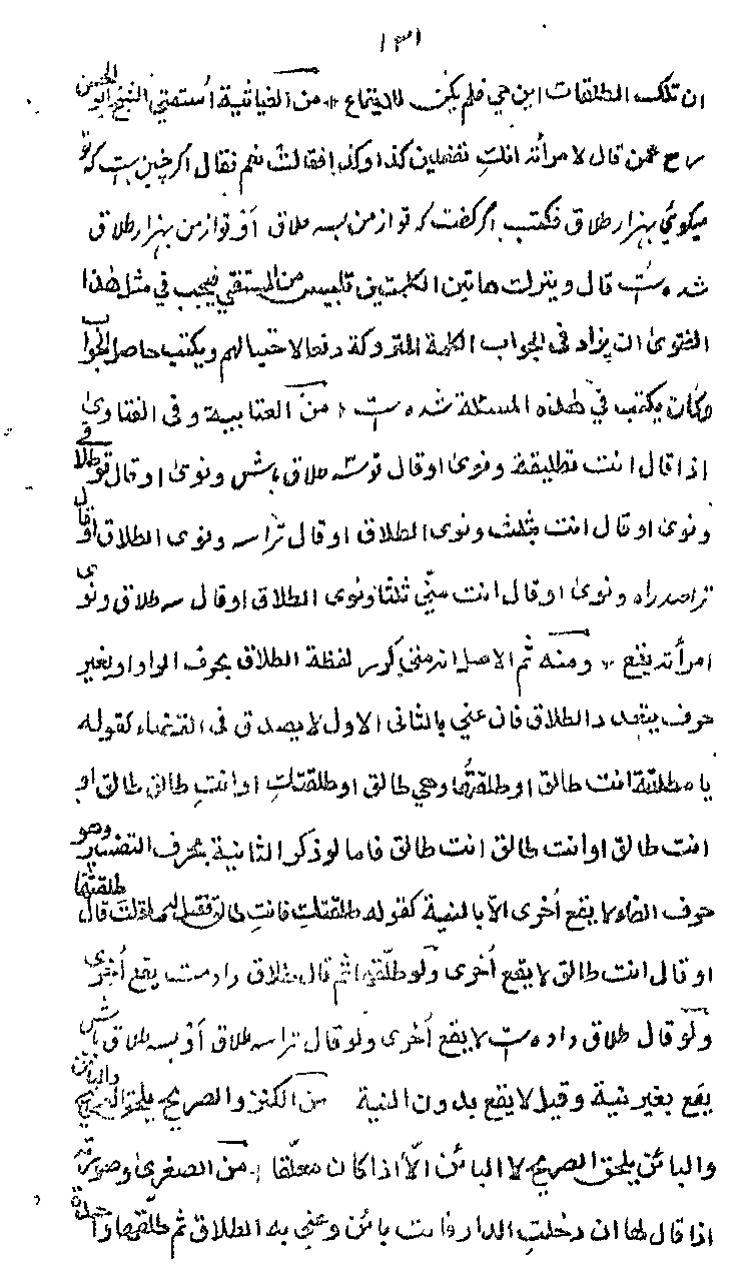 ١٣١
ان تلك الطلقات اين هي فلم يكن للايقاع من الغياثية استفتي الشيخ ابو الحسن
رح عمن قال لامرأته افلت تفعلين كذا وكذا فقالت نعم فقال اگر چنين است كه تو
ميكوئي بهزار طلاق فكتب اگر گفت كه تو از من بسه طلاق او تو از من بهزار طلاق
شده است قال وينزلت هاتين الكلمتين تلبيس من المستفتي فيجب في مثل هذا
الفتوى ان يزاد في الجواب الكلمة المتروكة دفعا لاحتيالهم ويكتب حاصل الجواب
وكان يكتب في هذه المسئلة شده است من العتابية وفي الفتاوى
اذا قال انت تطليقة ونوى او قال تو سه طلاق باش ونوى او قال تو طلاق
ونوى او قال انت بثلث ونوى الطلاق او قال تراسه ونوى الطلاق او قال
تراصد راه ونوى او قال انت مني ثلثا ونوى الطلاق او قال سه طلاق ونوى
امرأته يقع ومنه ثم الاصل انه متى كرر لفظة الطلاق بحرف الواو او بغير
حرف يتعدد الطلاق فان عني بالثاني الاول لا يصدق في القضاء كقوله
يا مطلقة انت طالق او طلقتها وهي طالق او طلقتك او انت طالق طالق او
انت طالق او انت طالق انت طالق فاما لو ذكر الثانية بحرف التفسير وهو
حرف الفاء لا يقع أخرى الا بالنية كقوله طلقتك فانت طالق فقيل له ماقلت قال طلقتها
او قال انت طالق لا يقع أخرى ولو طلقها ثم قال طلاق دادمت يقع أخرى
ولو قال طلاق داده است لا يقع أخرى ولو قال تراسه طلاق أو بسه طلاق باش
يقع بغير نية وقيل لا يقع بدون النية من الكنز والصريح يلحق الصريح والبائن
والبائن يلحق الصريح لا البائن الّا اذا كان معلّقا من الصغرى وصورته
اذا قال لها ان دخلت الدار فانت بائن وعني به الطلاق ثم طلّقها واحدة